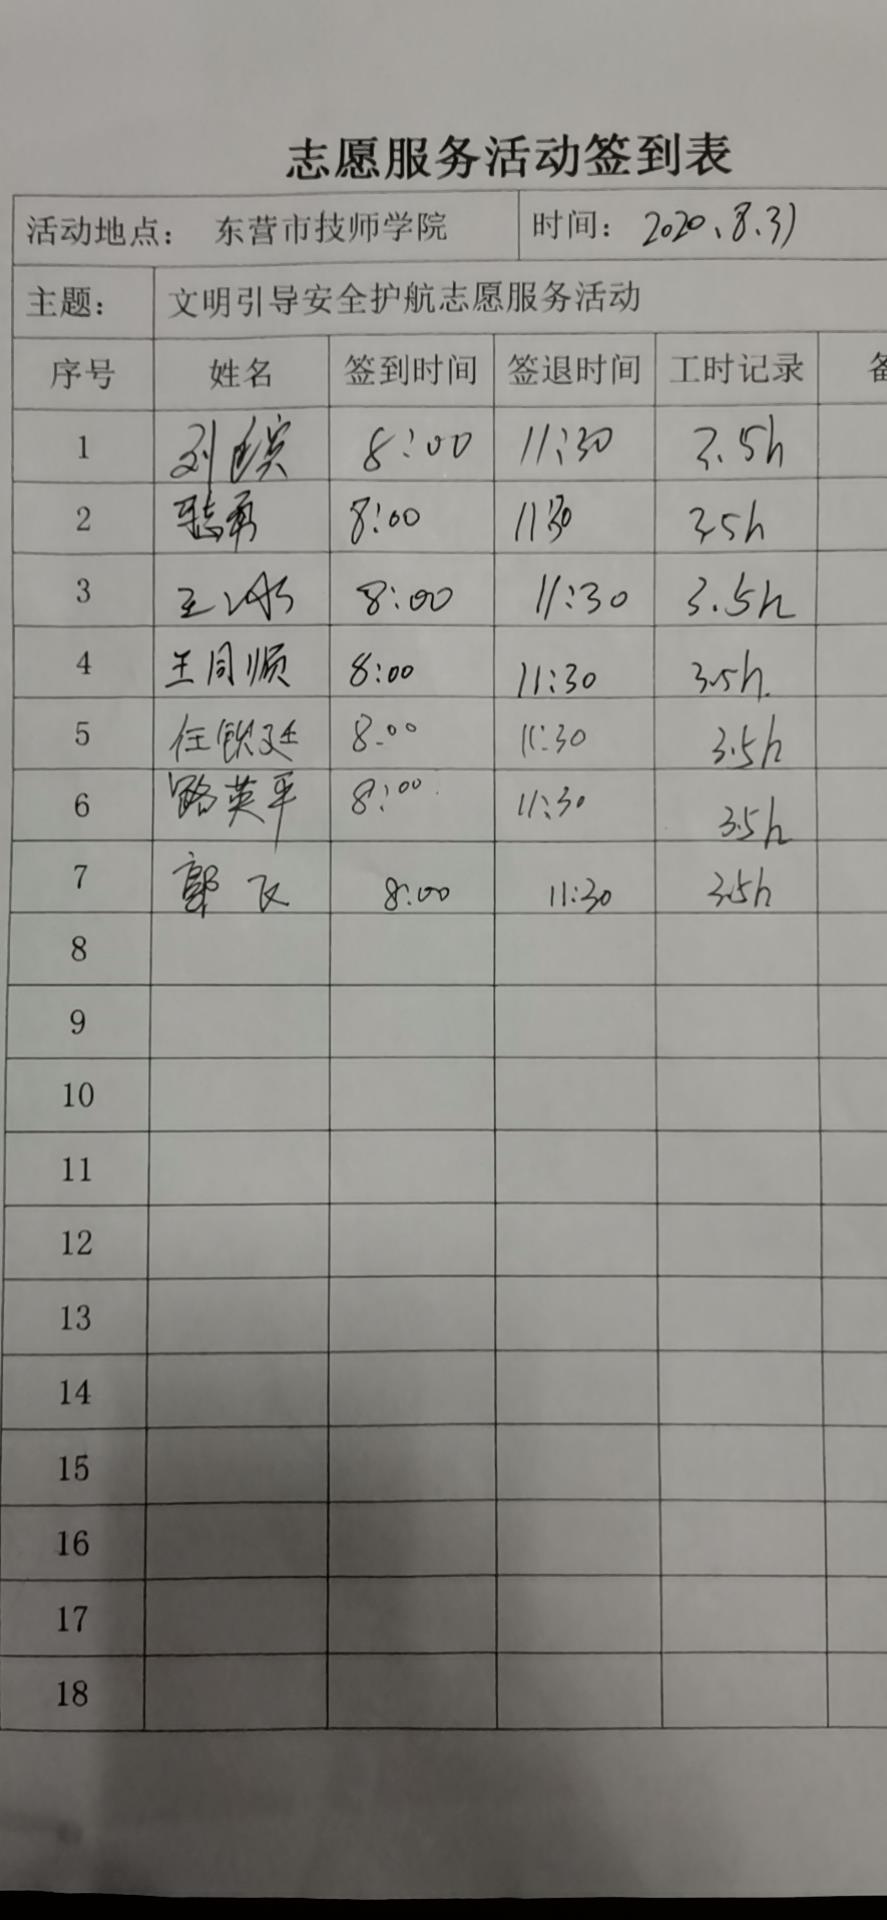 志愿服务活动签到表
活动地点： 东营市技师学院 时间： 2020.8.31
主题： 文明引导安全护航志愿服务活动
序号 姓名 签到时间 签退时间 工时记录
1 刘 8:00 11:30 3.5h
2 8:00 11:30 3.5h
3 王冰 8:00 11:30 3.5h
4 王同顺 8:00 11:30 3.5h.
5 任钦廷 8:00 11:30 3.5h
6 路英平 8:00 11:30 3.5h
7 郭飞 8:00 11:30 3.5h
8
9
10
11
12
13
14
15
16
17
18